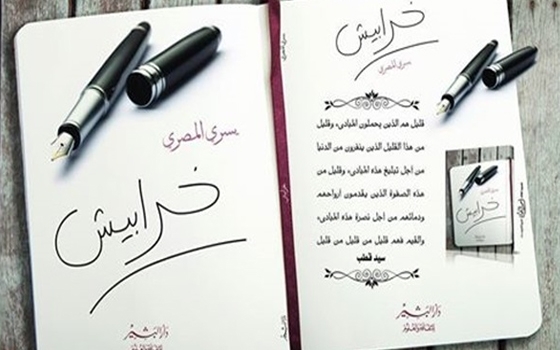 يسري المصري
خرابيش
دار البشير
للثقافة والعلوم
خرابيش
يسري المصري
قليل هم الذين يحملون المبادىء وقليل
من هذا القليل الذين ينفرون من الدنيا
من اجل تبليغ هذه المبادىء وقليل من
هذه الصفوة الذين يقدمون ارواحهم
ودمائهم من اجل نصرة هذه المبادىء
والقيم فهم قليل من قليل من قليل
سيد قطب
خرابيش
دار البشير
للثقافة والعلوم